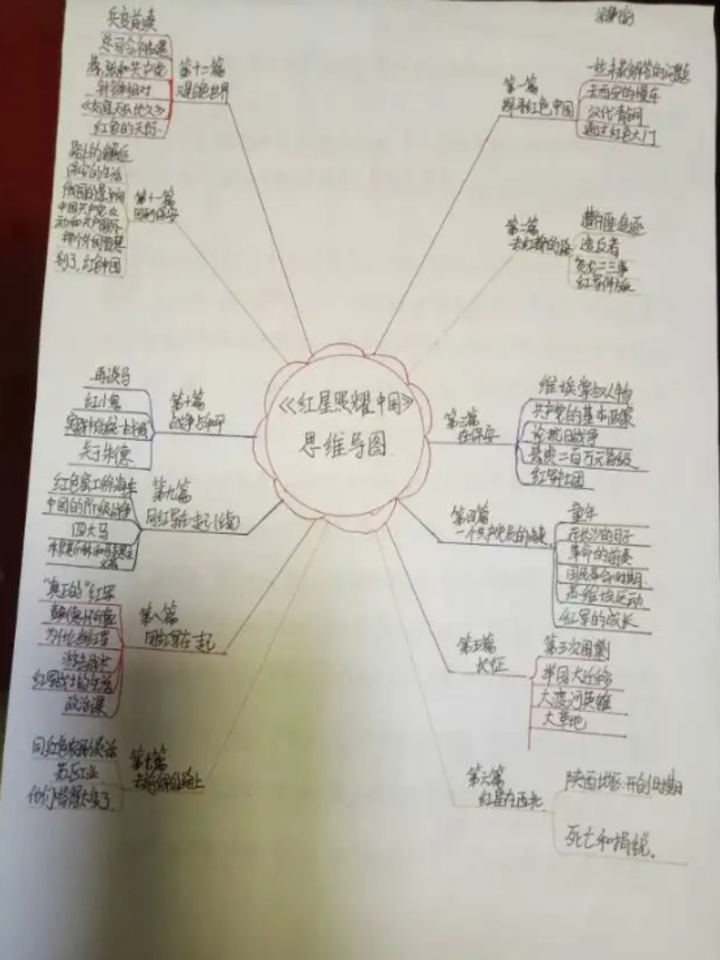 《红星照耀中国》
思维导图
第一篇
探寻红色中国
一些未获解答的问题
去西安的慢车
汉代青铜
通过红色大门
第二篇
去红都的路
遭白匪追逐
造反者
贺龙二三事
红军伴侣
第三篇
在保安
共产党的基本政策
论抗日战争
悬赏二百万元首级
红军社团
第四篇
一个共产党员的
童年
在长沙的日子
革命的前奏
国民革命时期
苏维埃运动
红军的成长
第五篇
长征
第五次围剿
举国大迁移
大渡河英雄
大草地
第六篇
红星在西北
陕西地区:开创时期
死亡和捐税。
第七篇
去前线的路上
同红色农民谈话
苏区工业
他们唱得太多了
第八篇
同红军在一起
"真正的"红军
为什么当红军
游击战术
红军战士的生活
政治课
第九篇
同红军在一起(续)
红色窑工的
中国的阶级战争
四大马
第十篇
战争与和平
再谈马
红小鬼
关于朱德
第十一篇
回到保安
路上的邂逅
保安的生活
俄国的影响
中国共产主义
动和共产国际
那个外国智囊
别了,红色中国
第十二篇
又是白色世界
兵变前奏
总司令被逮
蒋、张和共产党
针锋相对
《友谊天长地久》
红色的天际